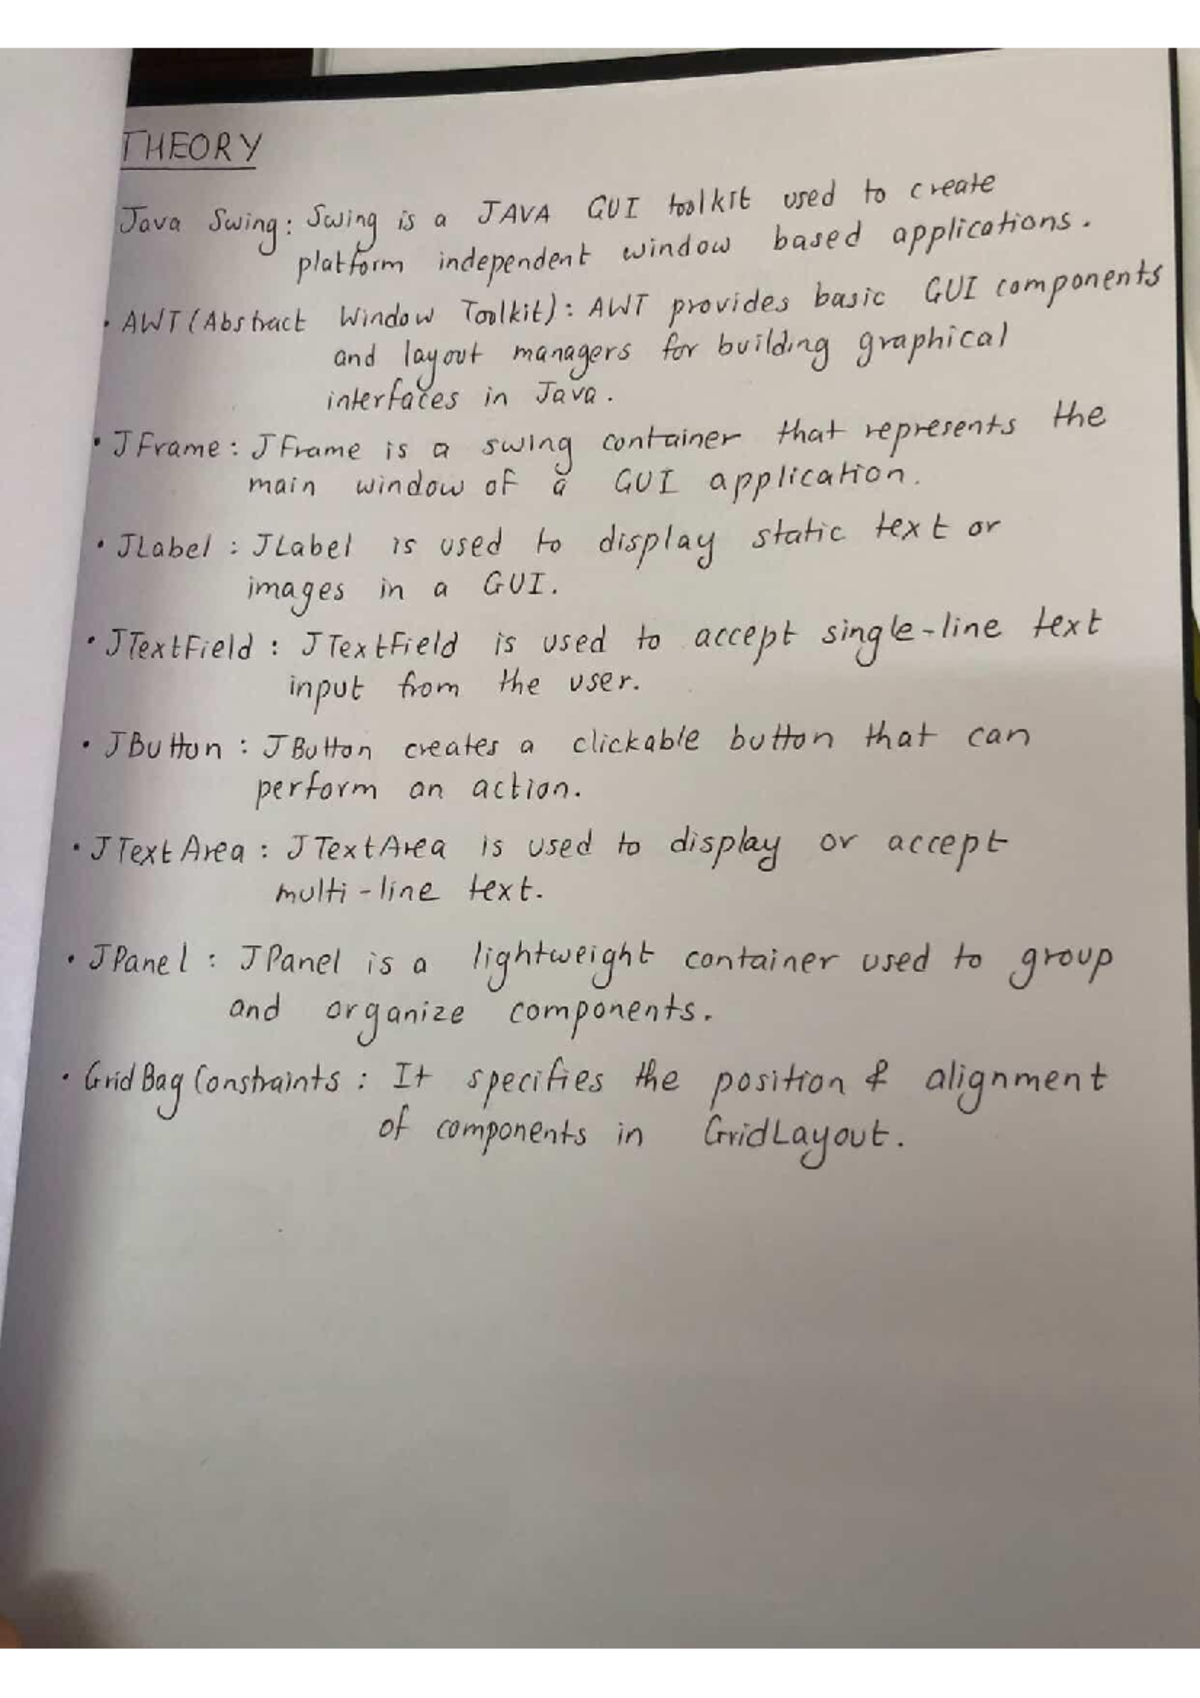 THEORY
Java Swing: Swing is a JAVA GUI toolkit used to create
platform independent window based applications.
• AWT (Abstract Window Toolkit): AWT provides basic GUI components
and layout managers for building graphical
interfaces in Java.
• JFrame: JFrame is a swing container that represents the
main window of a GUI application.
• JLabel: JLabel is used to display static text or
images in a GUI.
• JTextField: JTextField is used to accept single-line text
input from the user.
• JButton: JButton creates a clickable button that can
perform an action.
• JTextArea: JTextArea is used to display or accept
multi-line text.
• JPanel: JPanel is a lightweight container used to group
and organize components.
• GridBagConstraints: It specifies the position & alignment
of components in GridLayout.